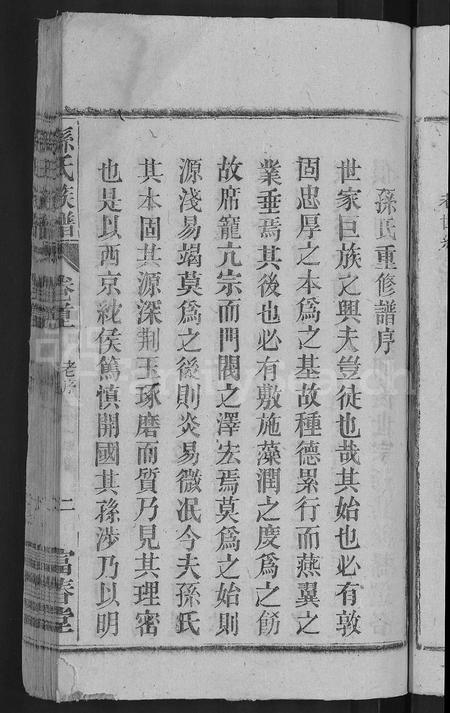 孫氏重修譜序
世家巨族之興夫豈徒也哉其始也必有敦
固忠厚之本爲之基故種德累行而燕翼之
業垂焉其後也必有敷施藻潤之度爲之飭
故席寵亢宗而門閥之澤宏焉莫爲之始則
源淺易竭莫爲之後則炎易微泯今夫孫氏
其本固其源深荆玉琢磨而質乃見其理密
也是以西京紞侯篤慎開國其孫渉乃以明
孫氏族譜
卷首
老序
二
富春堂